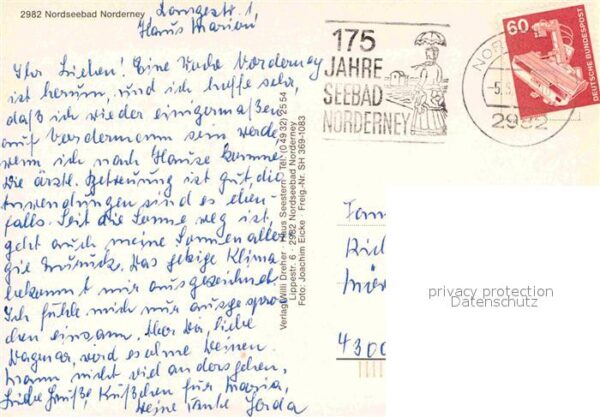 2982 Nordseebad Norderney
Langestr. 1
Haus Marion!
Ihr Lieben! Eine Woche Norderney
ist herum, und ich hoffe sehr,
daß ich wieder einigermaßen
auf Vordermann sein werde
wenn ich nach Hause komme.
Die ärztl. Betreuung ist gut, die
Anwendungen sind es eben-
falls. Seit die Sonne weg ist,
geht auch meine Sonnenaller-
gie zurück. Das hiesige Klima
bekommt mir ausgezeichnet
Ich fühle mich nur ausgespro-
chen einsam. Aber Da, liebe
Dagmar, wird es ohne Deinen
Mann nicht viel anders gehen.
Liebe Grüße, Küßchen für Maria,
Deine Tante Gerda
Verlag Willi Dreher · Haus Seestern · Tel. (0 49 32) 25 54
Lippestr. 6 · 2982 Nordseebad Norderney
Foto: Joachim Eicke · Freig.-Nr. SH 369-1083
175
JAHRE
SEEBAD
NORDERNEY
NOR
-5.5
2982
60
DEUTSCHE BUNDESPOST
Fam
4300
privacy protection
Datenschutz